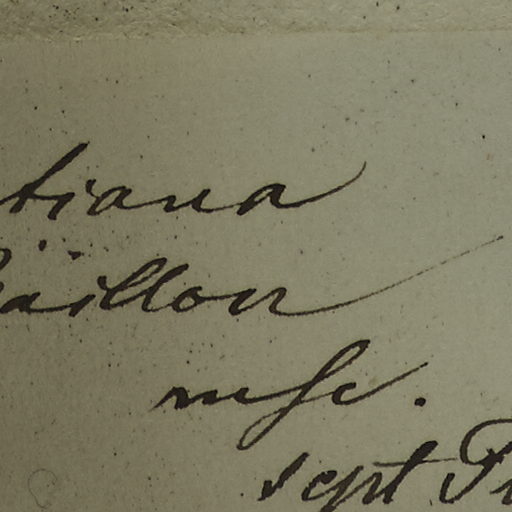 tiana
Bäillon
msc.
sept Fr